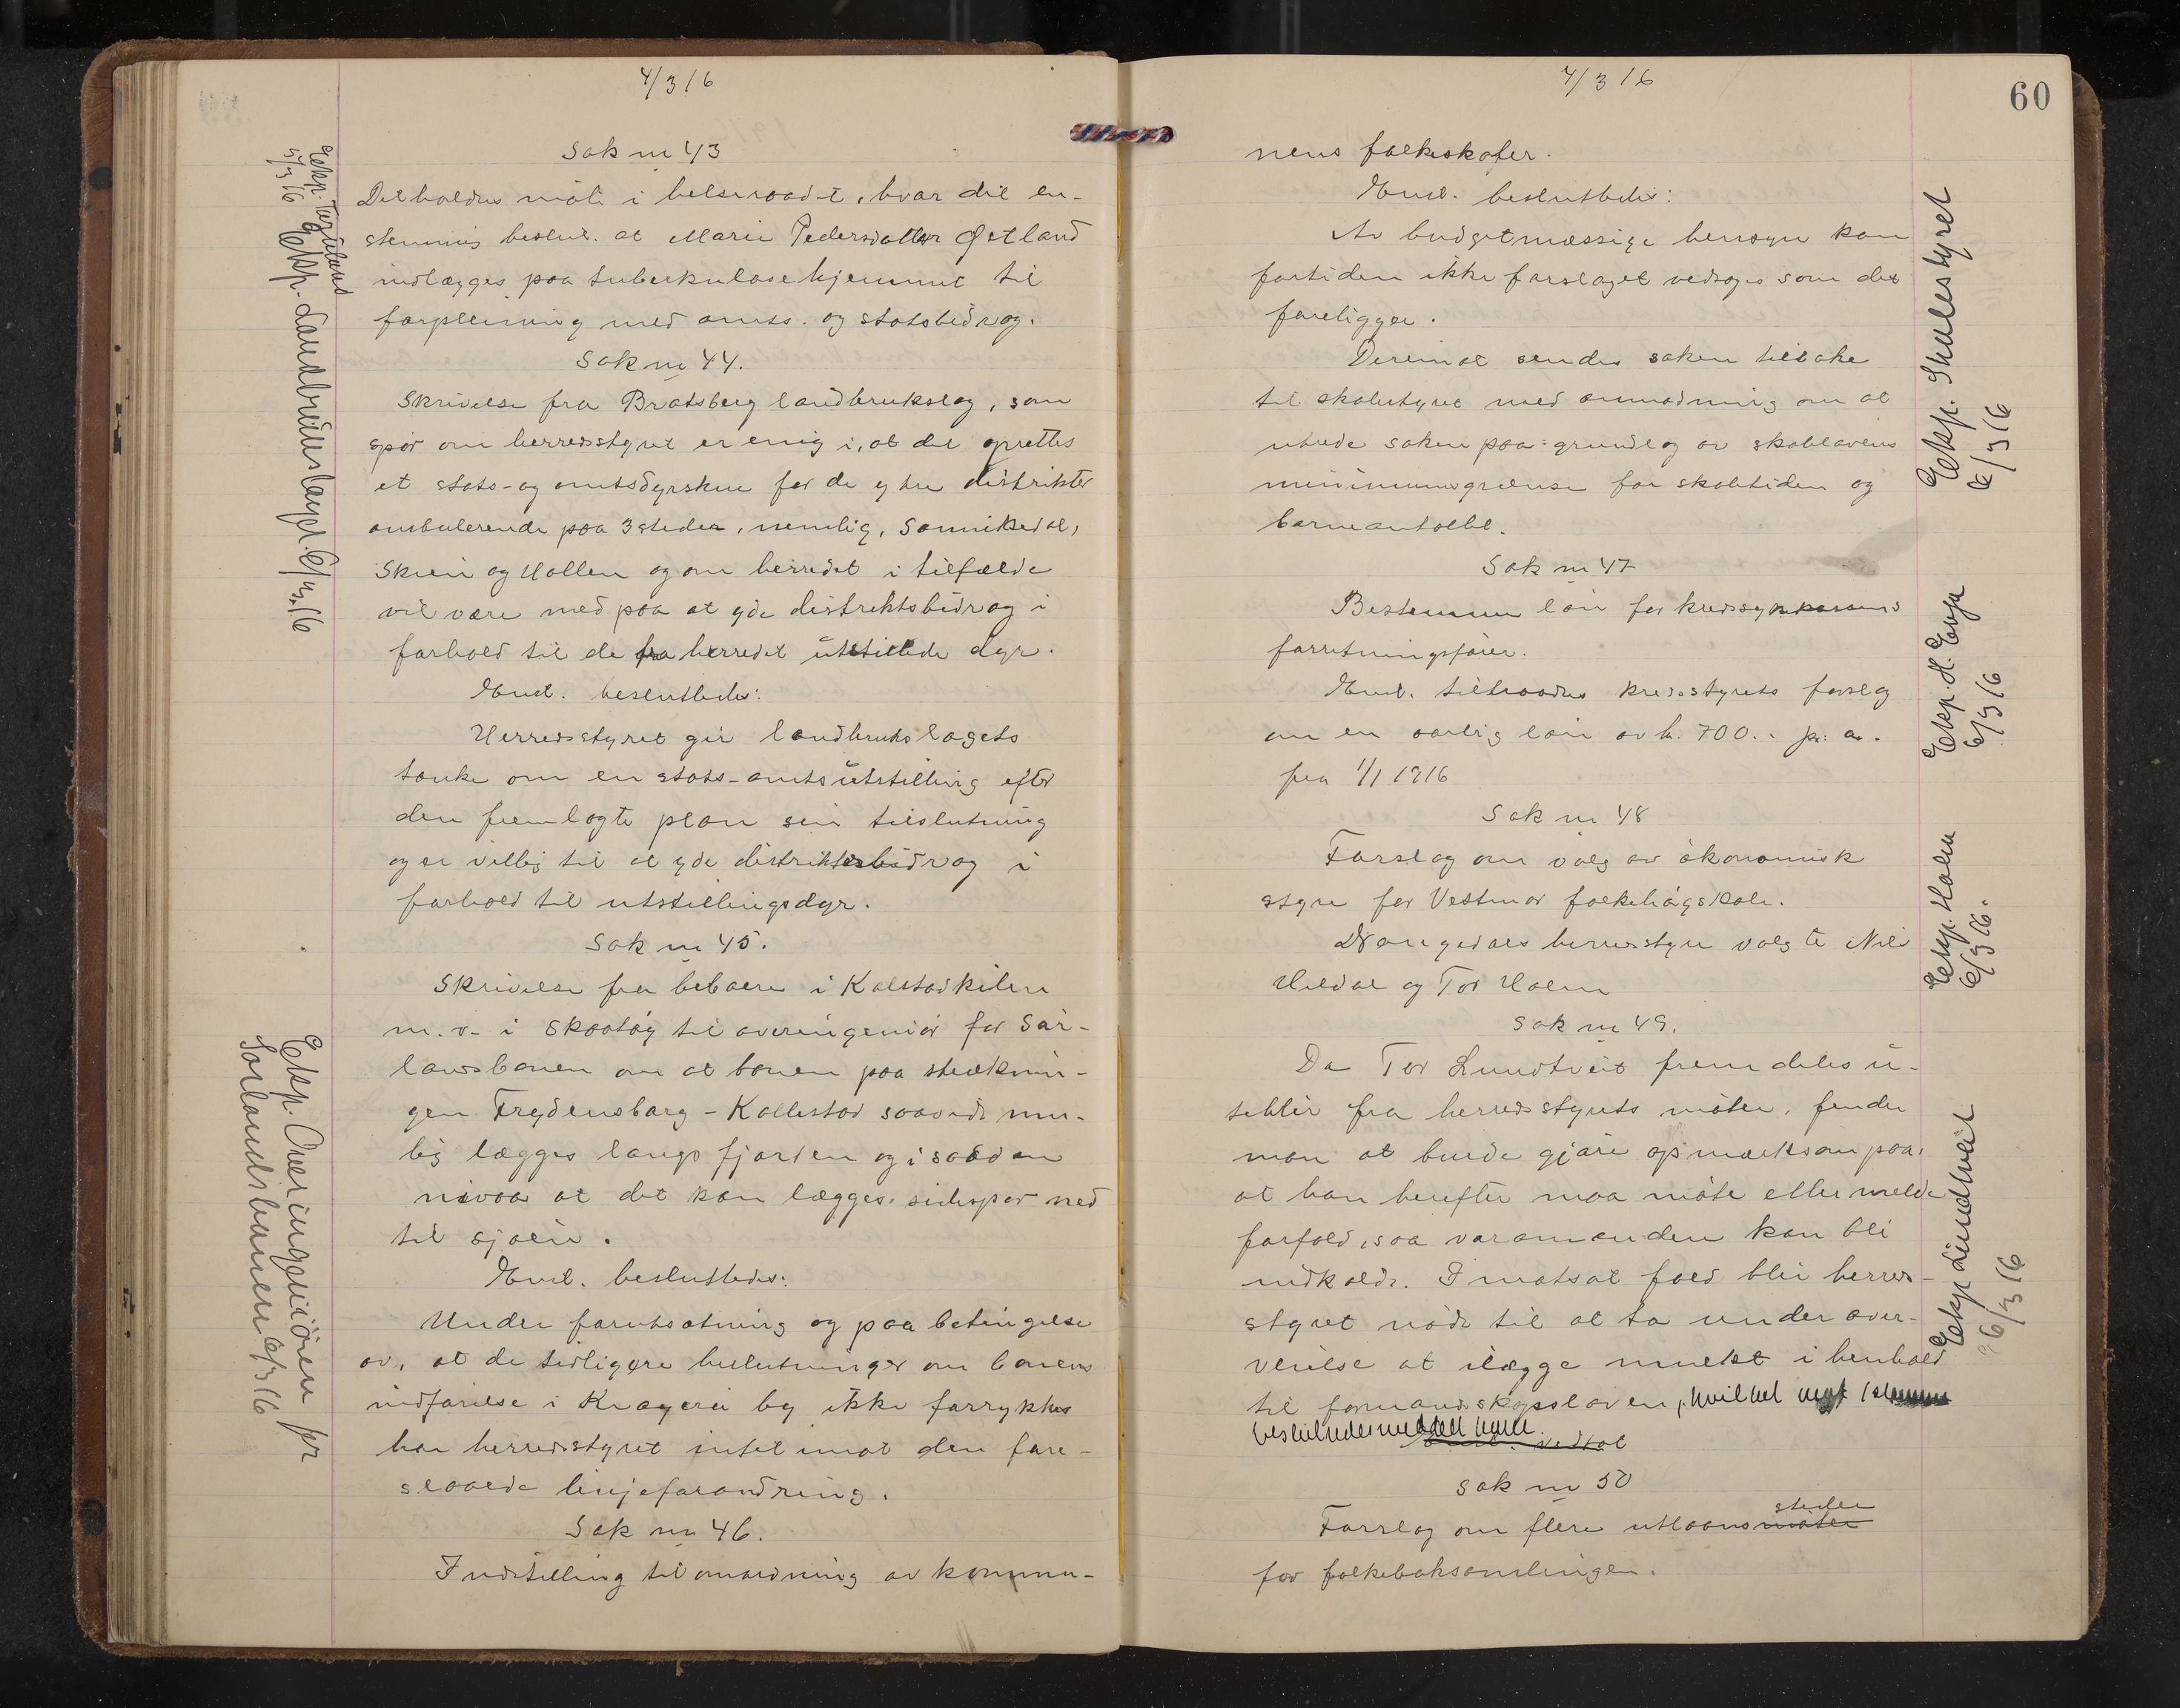 4/3 16
Sak nr 43
Det holdtes møte i helseraadet, hvor det en-
stemmig beslut. at Marie Pedersdatter Øetland
indlægges paa tuberkulosehjemmet til
forpleining med amts- og statsbidrag.
Sak nr 44.
Skrivelse fra Bratsberg landbrukslag, som
spør om herredsstyret er enig i, at det oprettes
et stats- og amtsdyrskue for de ytre distrikter
ambulerende paa 3 steder, nemlig, Sannikedal,
Skien og Hollen og om herredet i tilfælde
vil være med paa at yde distriktsbidrag i
forhold til de fra herredet utstillede dyr.
Enst. besluttedes:
Herredsstyret gir landbrukslagets
tanke om en stats-amtsutstilling efter
den fremlagte plan sin tilslutning
og er villig til at yde distriktsbidrag i
forhold til utstillingsdyr.
Sak nr 45.
Skrivelse fra beboere i Kalstadkilen
m. v. i Skaatøy til overingeniør for Sør-
landsbanen om at banen paa stræknin-
gen Frydensborg - Kallestad saavidt mu-
lig lægges langs fjorden og i saadan
nivaa at det kan lægges sidespor ned
til sjøen.
Enst. besluttedes:
Under forutsætning og paa betingelse
av, at de tidligere beslutninger om banens
indførelse i Kragerø by ikke forrykkes
har herredsstyret intet imot den fore-
slaaede linjeforandring.
Sak nr 46.
Indstilling til omordning av kommu-
Ekp. Landbrukslaget 6/3 16
Ekp. Overingeniøren for
Sørlandsbanen 6/3 16
4/3 16
60
nens folkeskoler.
Enst. besluttedes:
Av budgetmæssige hensyn kan
fortiden ikke forslaget vedtages som det
foreligger.
Derimot sendes saken tilbake
til skolestyret med anmodning om at
utrede saken paa grundlag av skolelovens
minimumsgrænse for skoletiden og
barneantallet.
Sak nr 47
Bestemme løn for kredssykekassens
forretningsfører.
Enst. tiltraades kredsstyrets forslag
om en aarlig løn av kr. 700.. pr. a.
fra 1/1 1916
Sak nr 48
Forslag om valg av økonomisk
styre for Vestmar folkehøgskole.
Drangedals herredsstyre valgte Nils
Heldal og Tor Holm
Sak nr 49.
Da Tor Lundtveit fremdeles u-
tebblir fra herredsstyrets møter, finder
man at burde gjøre opmerksom paa,
at han herefter maa møte eller melde
forfald, saa varamanden kan bli
indkaldt. I motsat fald blir herreds-
styret nødt til at ta under over-
veielse at ilægge mulkt i henhold
til formandskapsloven, hvilket mot 1 stemme
besluttedes meddelt ham.
Enst. vedtat
Sak nr 50
Forslag om flere utlaansmøter
steder
for folkeboksamlingen.
Ekp. Skolestyret
6/3 16
Ekp. H. Evju
6/3 16
Ekp. Holm
6/3 16.
Ekp Lundtveit
6/3 16